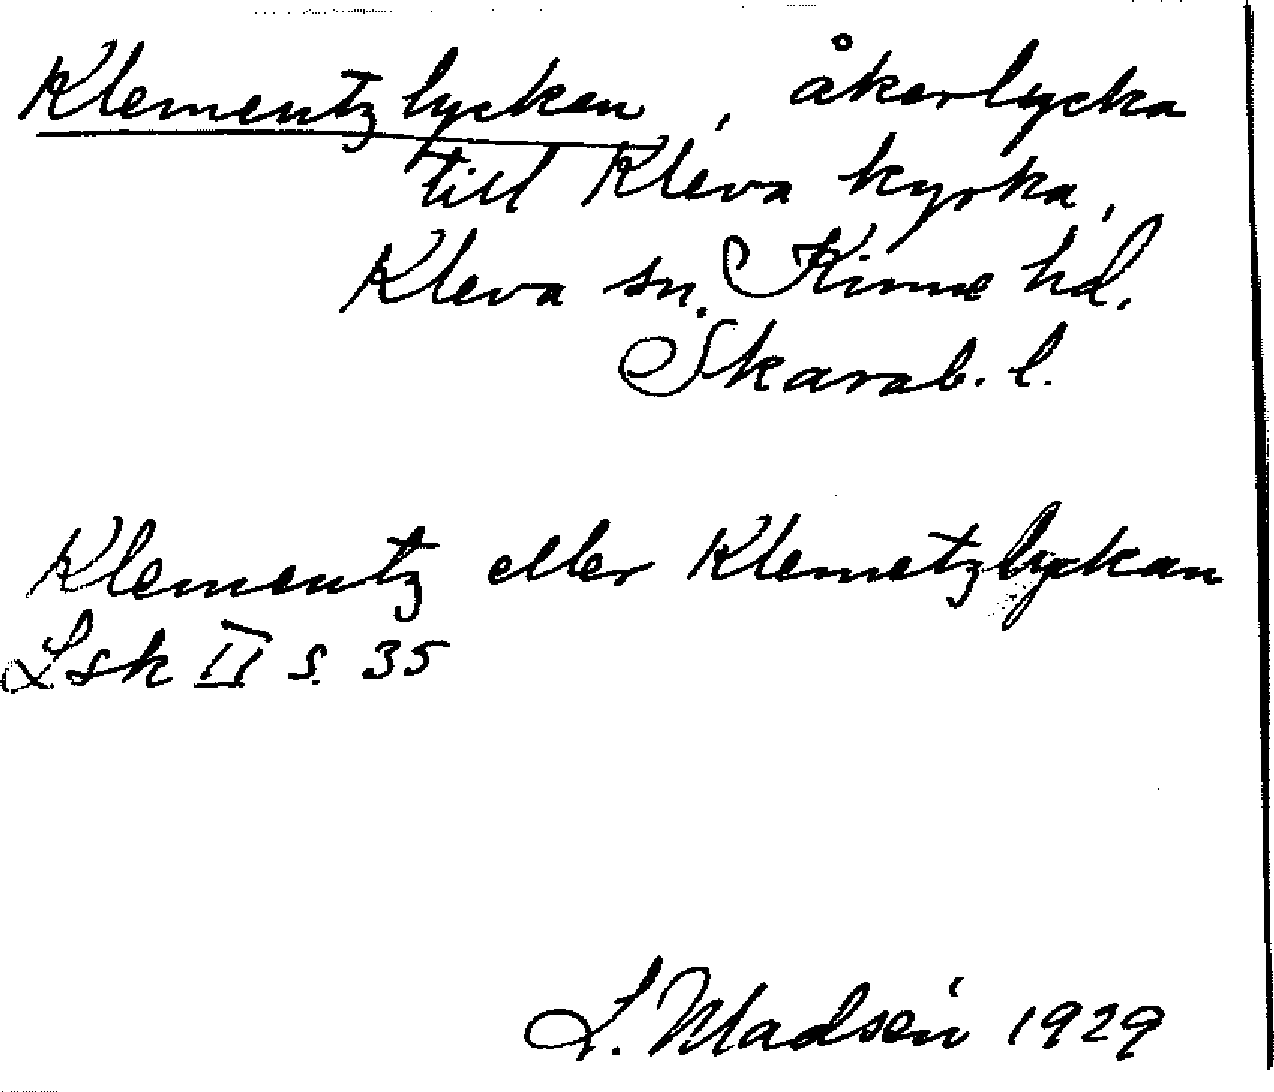 Klementz lycken, åkerlycka
till Kleva kyrka,
Kleva sn. Kinne hd.
Skarab. l.
Klementz eller Klemetzlyckan
Lsk II s. 35
L. Madsén 1929